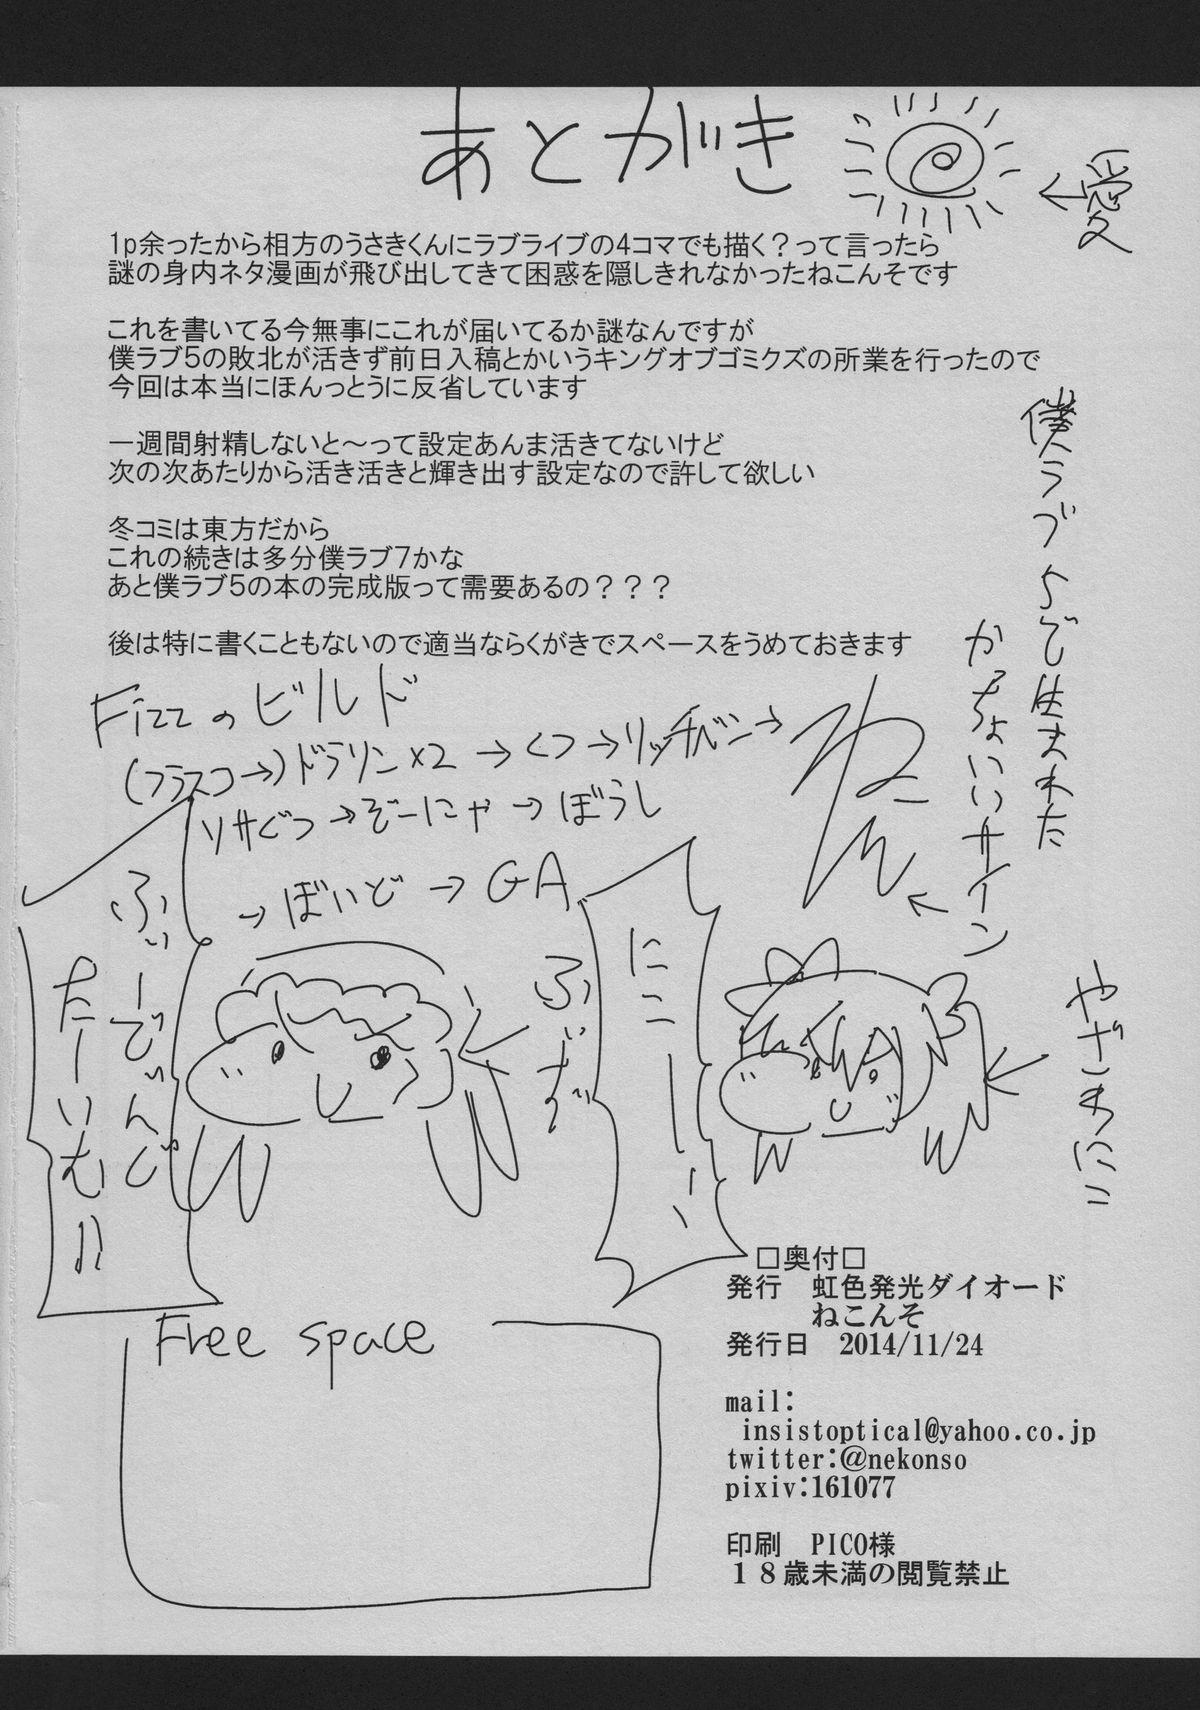 あとがき
←愛
1p余ったから相方のうさきくんにラブライブの4コマでも描く？って言ったら
謎の身内ネタ漫画が飛び出してきて困惑を隠しきれなかったねこんそです
これを書いてる今無事にこれが届いてるか謎なんですが
僕ラブ5の敗北が活きず前日入稿とかいうキングオブゴミクズの所業を行ったので
今回は本当にほんっとうに反省しています
一週間射精しないと～って設定あんま活きてないけど
次の次あたりから活き活きと輝き出す設定なので許して欲しい
冬コミは東方だから
これの続きは多分僕ラブ7かな
あと僕ラブ5の本の完成版って需要あるの？？？
後は特に書くこともないので適当ならくがきでスペースをうめておきます
僕ラブ5で生まれた
かっちょいいサイン
Fizzのビルド
(フラスコ→)ドラリン×2→くつ→リッチベン→
ソサぐつ→ぞーにゃ→ぼうし
→ぼいど→GA
ねこん
ふぃーでぃんぐ
たーいむ!!
ふぃず
にこーーー
やざわにこ
□奥付□
発行　虹色発光ダイオード
ねこんそ
発行日　2014/11/24
mail:
insistoptical@yahoo.co.jp
twitter:@nekonso
pixiv:161077
印刷　PICO様
１８歳未満の閲覧禁止
Free space